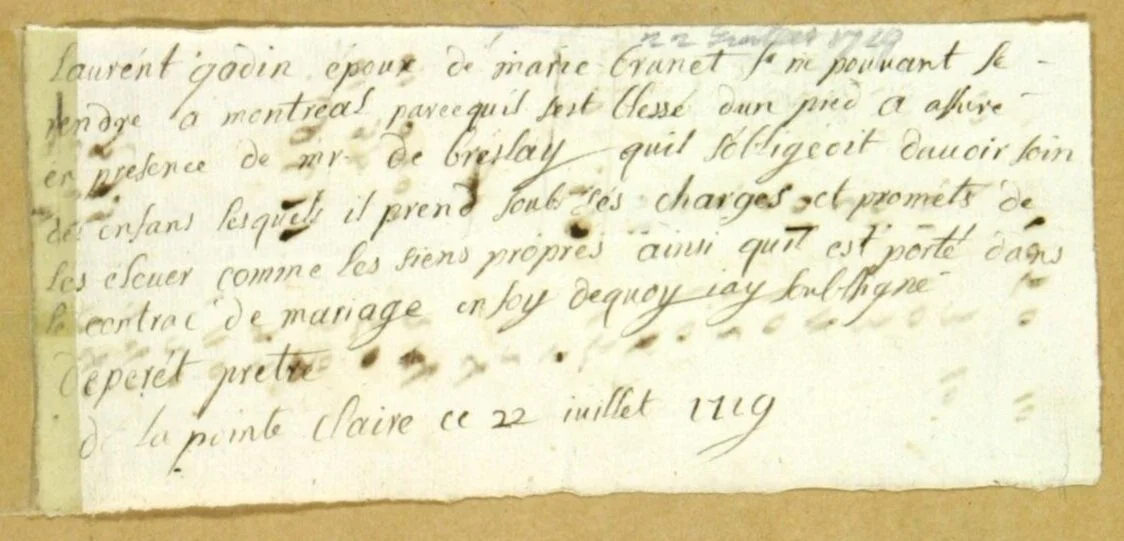 22 Juillet 1719
Laurént gadin époux de marie brunet ne pouvant se -
rendre a montréal parcequil sest blessé dun pied a assuré
en présence de mr de breslay quil sobligeoit davoir soin
des enfans lesquels il prend soubs sés charges et promets de
les elever comme les siens propres ainsi quil est porté dans
le contrac de mariage en foy dequoy iay soubsigné
déperét prétre
de la pointe claire ce 22 iuillet 1719